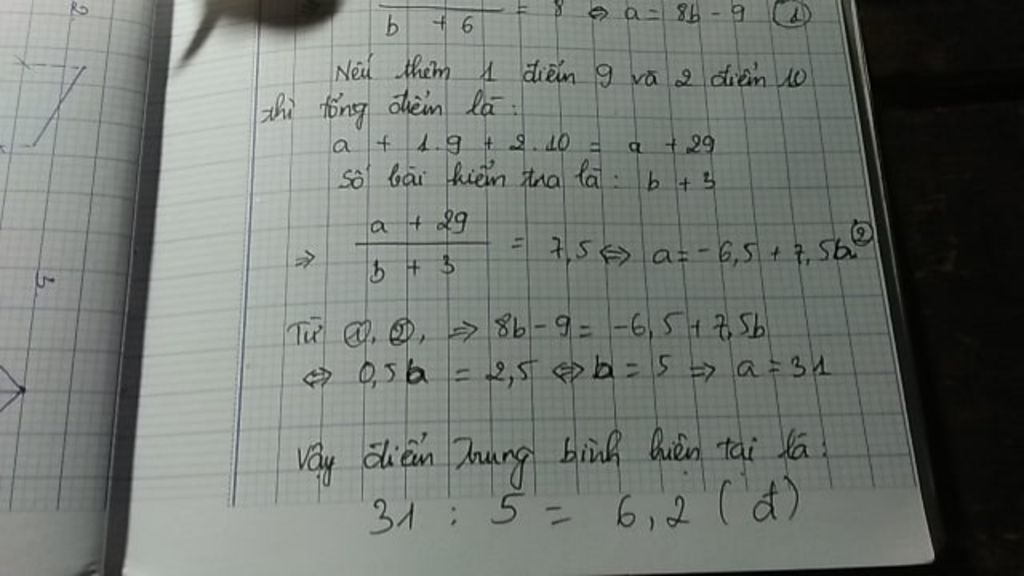 b + 6 = 8 ⇔ a = 8b - 9 (1)
Nếu thêm 1 điểm 9 và 2 điểm 10
thì tổng điểm là:
a + 1.9 + 2.10 = a + 29
Số bài kiểm tra là: b + 3
⇒ a + 29 / b + 3 = 7,5 ⇔ a = -6,5 + 7,5b (2)
Từ (1), (2), ⇒ 8b - 9 = -6,5 + 7,5b
⇔ 0,5b = 2,5 ⇔ b = 5 ⇒ a = 31
Vậy điểm trung bình hiện tại là:
31 : 5 = 6,2 (đ)